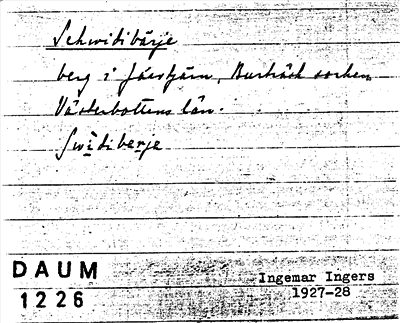 Schwidibärje
berg i Jåestjärn, Burträsk socken
Västerbottens län.
Swidiberje
DAUM
1226
Ingemar Ingers
1927-28